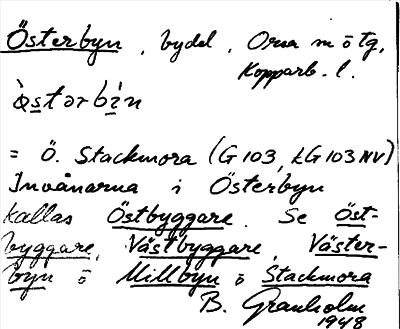 Österbyn, bydel, Orsa m ö tg,
Kopparb. l.
= Ö. Stackmora (G 103, LG 103 NV)
Invånarna i Österbyn
kallas Östbyggare. Se Öst-
byggare, Västbyggare, Väster-
byn o Millbyn o Stackmora
B. Granholm
1948